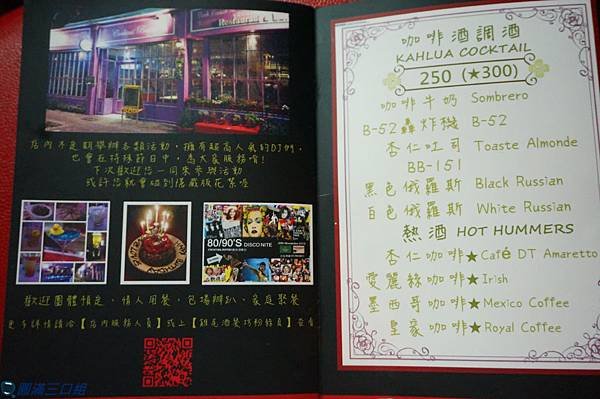 店內不定期舉辦各類活動，擁有超高人氣的DJ們，
也會在特殊節日中，為大家服務唷!
下次歡迎您一同來參與活動
或許您就會碰到隱藏版花絮喔
80/90'S
DISCO NITE
歡迎團體預定、情人用餐、包場辦趴、家庭聚餐
更多詳情請洽【店內服務人員】或上【雞尾酒餐坊粉絲頁】
圓滿三口組
咖啡酒調酒
KAHLUA COCKTAIL
250 (★300)
咖啡牛奶 Sombrero
B-52轟炸機 B-52
杏仁吐司 Toaste Almonde
BB-151
黑色俄羅斯 Black Russian
白色俄羅斯 White Russian
熱酒 HOT HUMMERS
杏仁咖啡★Café DT Amaretto
愛麗絲咖啡★Irish
墨西哥咖啡★Mexico Coffee
皇家咖啡★Royal Coffee